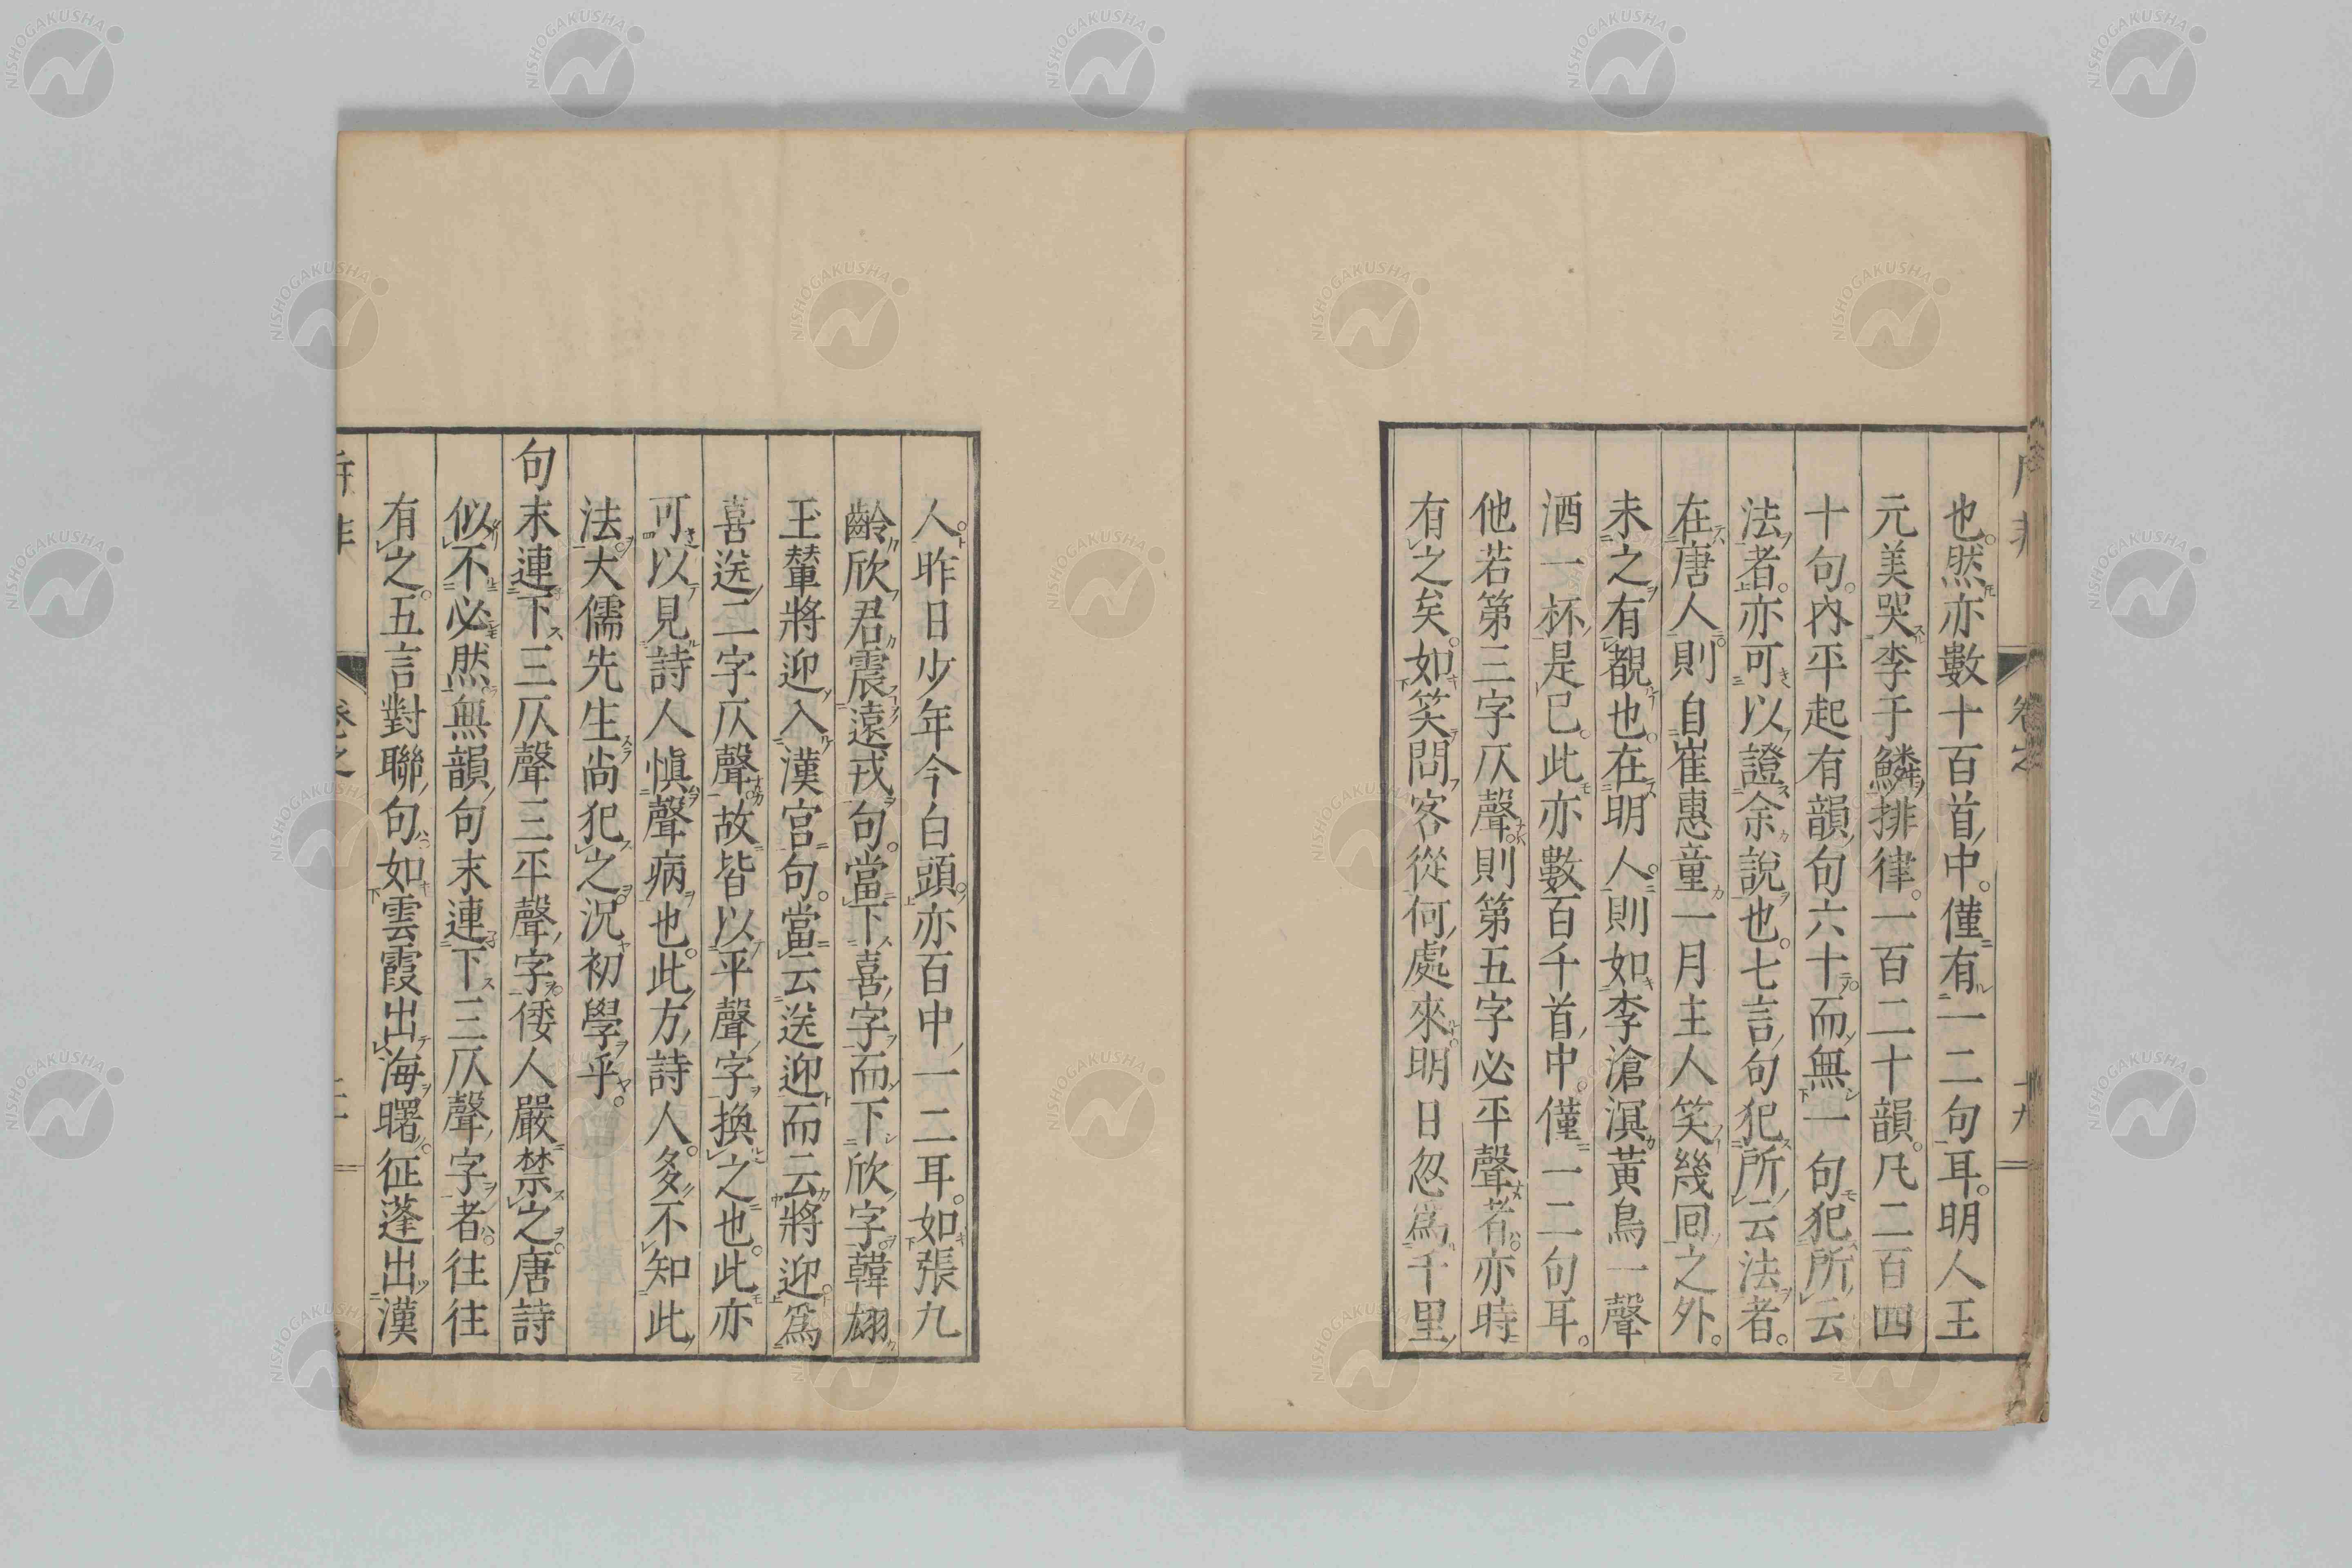 也然亦數十百首中僅有一二句耳明人王
元美哭李于鱗排律一百二十韻凡二百四
十句內平起有韻句六十而無一句犯所云
法者亦可以證余說也七言句犯所云法者
在唐人則自崔惠童一月主人笑幾回之外
未之有覩也在明人則如李滄溟黃鳥一聲
酒一杯是已此亦數百千首中僅一二句耳
他若第三字仄聲則第五字必平聲者亦時
有之矣如笑問客從何處來明日忽爲千里
人昨日少年今白頭亦百中一二耳如張九
齡欣君震遠戎句當下喜字而下欣字韓翃
玉輦將迎入漢宮句當云送迎而云將迎爲
喜送二字仄聲故皆以平聲字換之也此亦
可以見詩人愼聲病也此方詩人多不知此
法大儒先生尚犯之況初學乎
句末連下三仄聲三平聲字倭人嚴禁之唐詩
似不必然無韻句末連下三仄聲字者往往
有之五言對聯句如雲霞出海曙征蓬出漢
卷之
十九
NISHOGAKUSHA